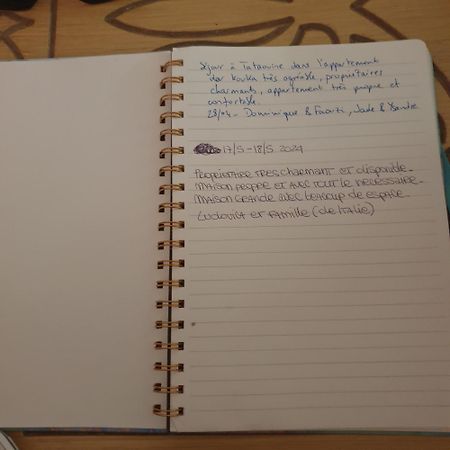 Séjour à Tataouine dans l'appartement
dar kouka très agréable, propriétaires
charmants, appartement très propre et
confortable.
28/04 - Dominique & Faouzi, Jade &
17/5 - 18/5 2024
PROPRIETAIRE TRES CHARMANT ET DISPONIBLE.
MAISON PROPRE ET AVEC TOUT LE NECESSAIRE.
MAISON GRANDE AVEC BEAUCUP DE ESPACE
LUDOVICA ET FAMILLE (de ITALIE)